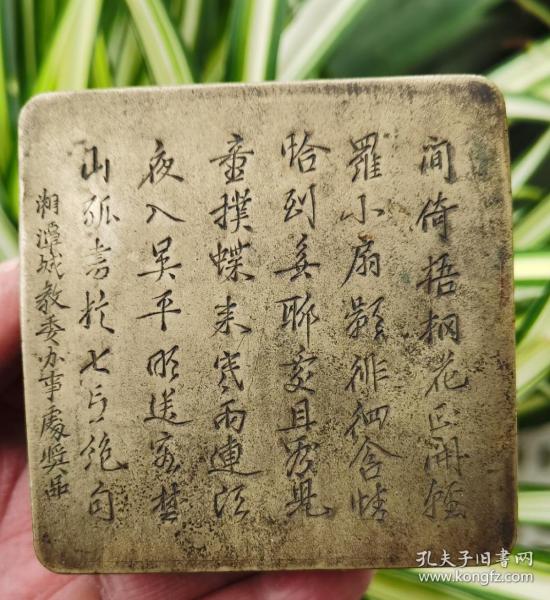 间倚梧桐花正開輕
羅小扇影徘徊含情
恰到無聊處且看兒
童撲蝶来寒雨連江
夜入吴平明送客楚
山孤書於七言绝句
湘潭城教委办事處奬品
孔夫子旧书网
www.kongfz.com